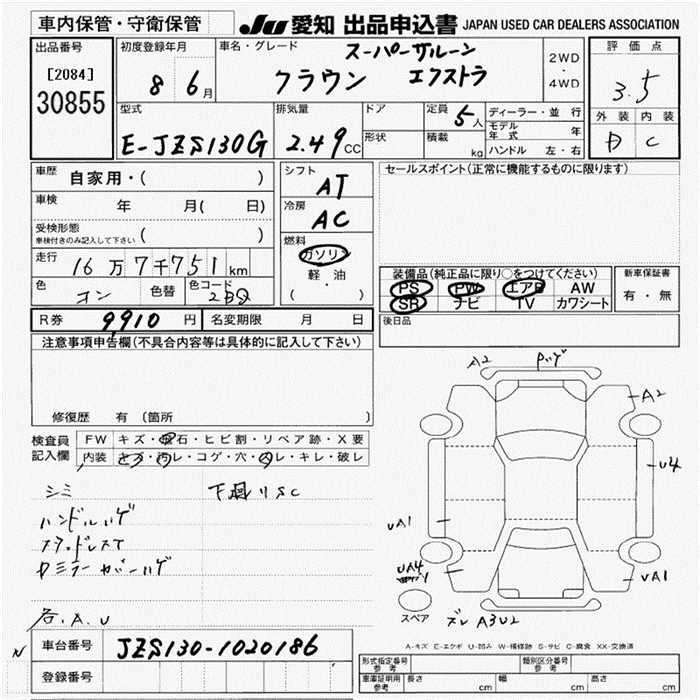 車内保管・守衛保管
JU 愛知 出品申込書 JAPAN USED CAR DEALERS ASSOCIATION
出品番号
[2084]
30855
初度登録年月
8 6月
車名・グレード
スーパーサルーン
クラウン エクストラ
2WD
・
4WD
評価点
3.5
外装 内装
D C
型式
E-JZS130G
排気量
2.49 CC
ドア
形状
定員 5人
積載 kg
ディーラー・並行
モデル年式 年
ハンドル 左・右
車歴 自家用・( )
車検 年 月( 日)
受検形態
車検付きのみ記入して下さい ( )
走行 16万7千751km
色 コン 色替 色コード 2BQ
シフト
AT
冷房
AC
燃料
ガソリン
軽油
( ・ )
セールスポイント(正常に機能するものに限ります)
装備品(純正品に限り○をつけてください)
PS PW エアB AW
SR ナビ TV カワシート
新車保証書
有・無
後日品
R券 9,910 円 名変期限 月 日
注意事項申告欄(不具合内容等は具体的に記入して下さい)
修復歴 有 (箇所
検査員記入欄
FW キズ・飛石・ヒビ割・リペア跡・X要
内装 キズ・汚レ・コゲ・穴・スレ・キレ・破レ
シミ 下廻リSC
ハンドルハゲ
各.A.U
A2
A2
U4
UA1
UA4
UA1
スペア
A3U2
A-キズ E-エクボ U-凹み W-補修跡 S-サビ C-腐食 XX-交換済
N
車台番号 JZS130-1020186
登録番号
形式指定番号 参考
類別区分番号 参考
車庫証明用 参考 長さ cm 幅 cm 高さ cm